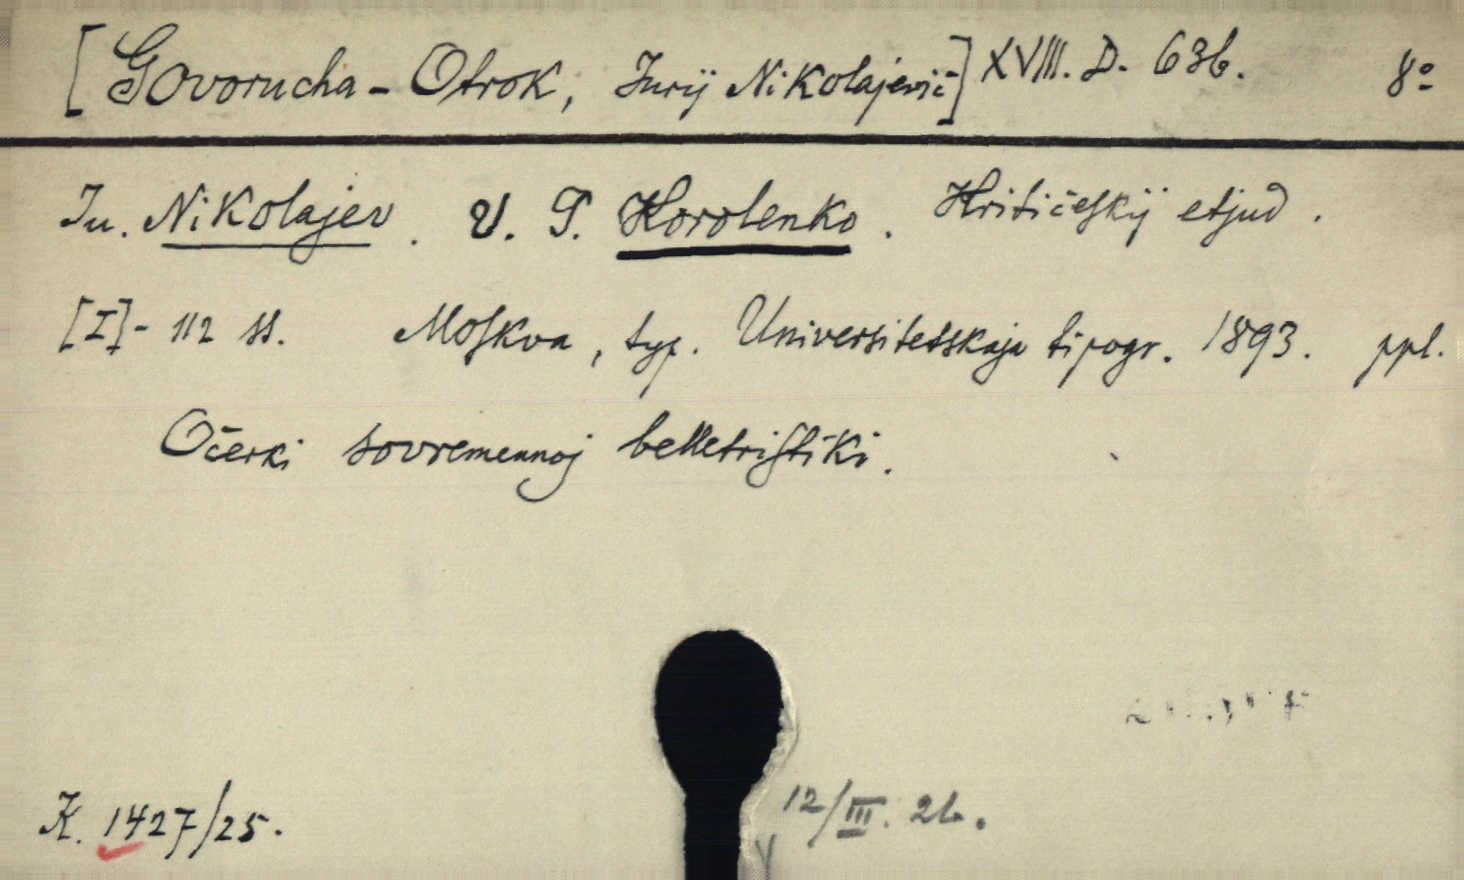 [Govorucha-Otrok, Jurij Nikolajevič] XVIII. D. 636. 8º
Ju. Nikolajev. V. G. Korolenko. Kritičeskij etjud.
[I]- 112 ss. Moskva, typ. Universitetskaja tipogr. 1893. ppl.
Očerki sovremennoj belletristiki.
K. 1427/25.
12/III. 26.